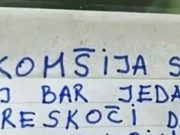 KOMŠIJA S
J BAR JEDA
RESKOČI D